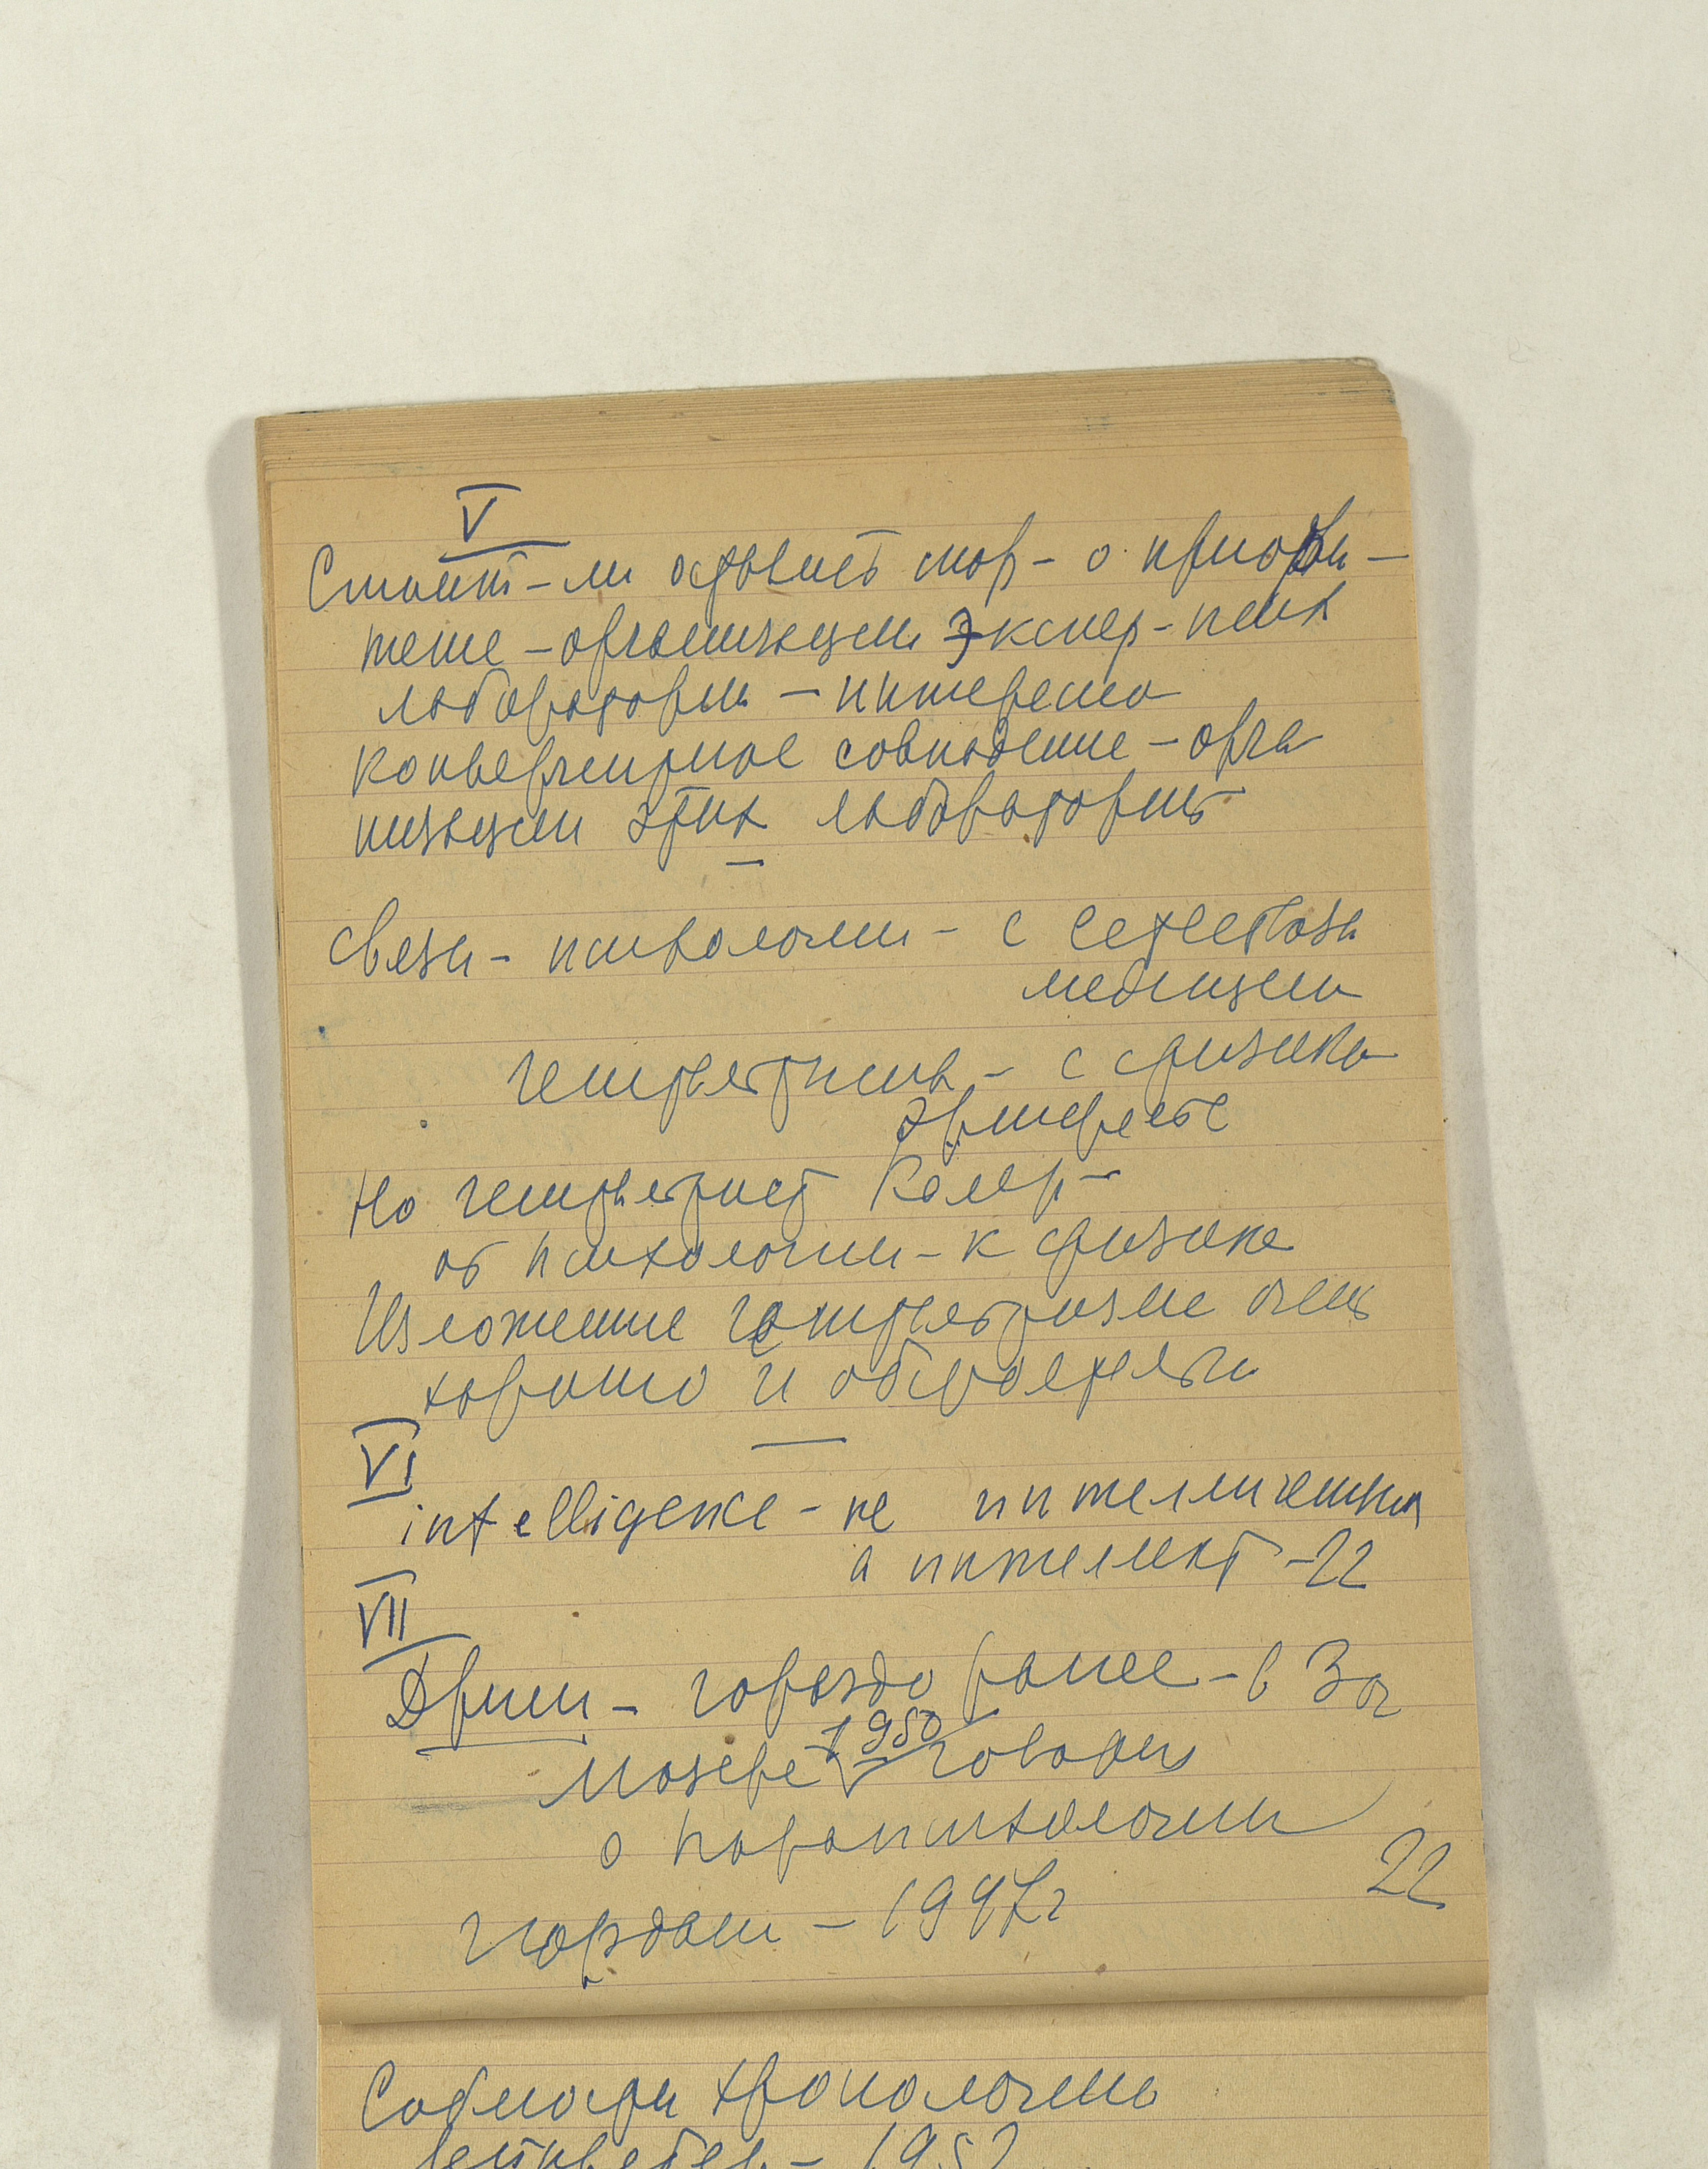 V
Стоит-ли оставить спор - о приори-
тете - организации экспер - псих
лаборатории - интересно
конвергентное совпадение - орга
низации этих лабораторий
Связи - психологии - с
медицина
гештальтизм - с физика
Но гешальтист Келер -
от психологии - к физике
Изложение гештальтизме очень
хорошо и
VI
intelligence - не интеллигенция
а интеллект - 22
VII
Дриш - гораздо ранее - в Заг
1950
говорил
о парапсихологии
22
Иордан - 1947г
Соблюсти хронологию
1952